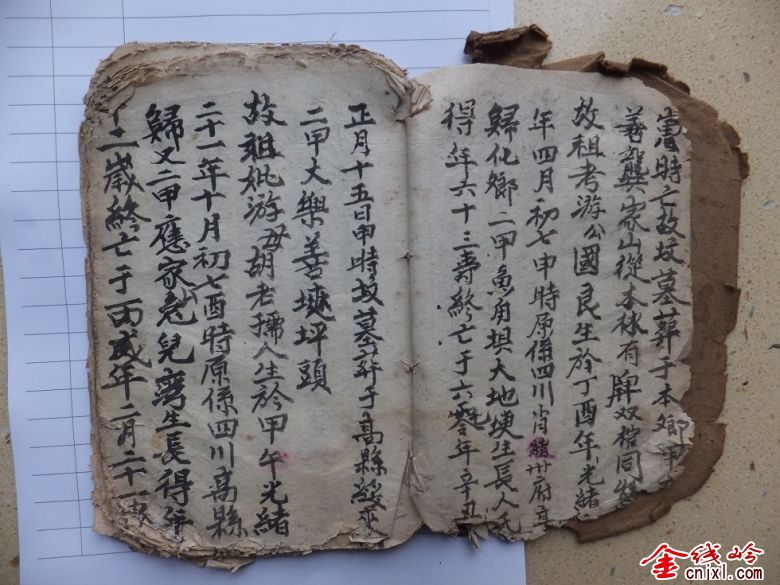 當時亡故坟墓葬于本鄉甲
善龔家山從本林有碑双棺同
故祖考游公國良生於丁酉年光緒
年四月初七申時原係四川肖緒州府高
歸化鄉二甲魚角垻大地埂生長人氏
得年六十三壽終亡于六零年辛丑
正月十五日申時坟墓葬于高縣
二甲大樂善坪頭
故祖妣游母胡老孺人生於甲午光緒
二十一年十月初七酉時原係四川高縣
歸又二甲應家兒灣生長得年
十二歲終亡于丙戌年二月二十一
金线岭
cnixl.com